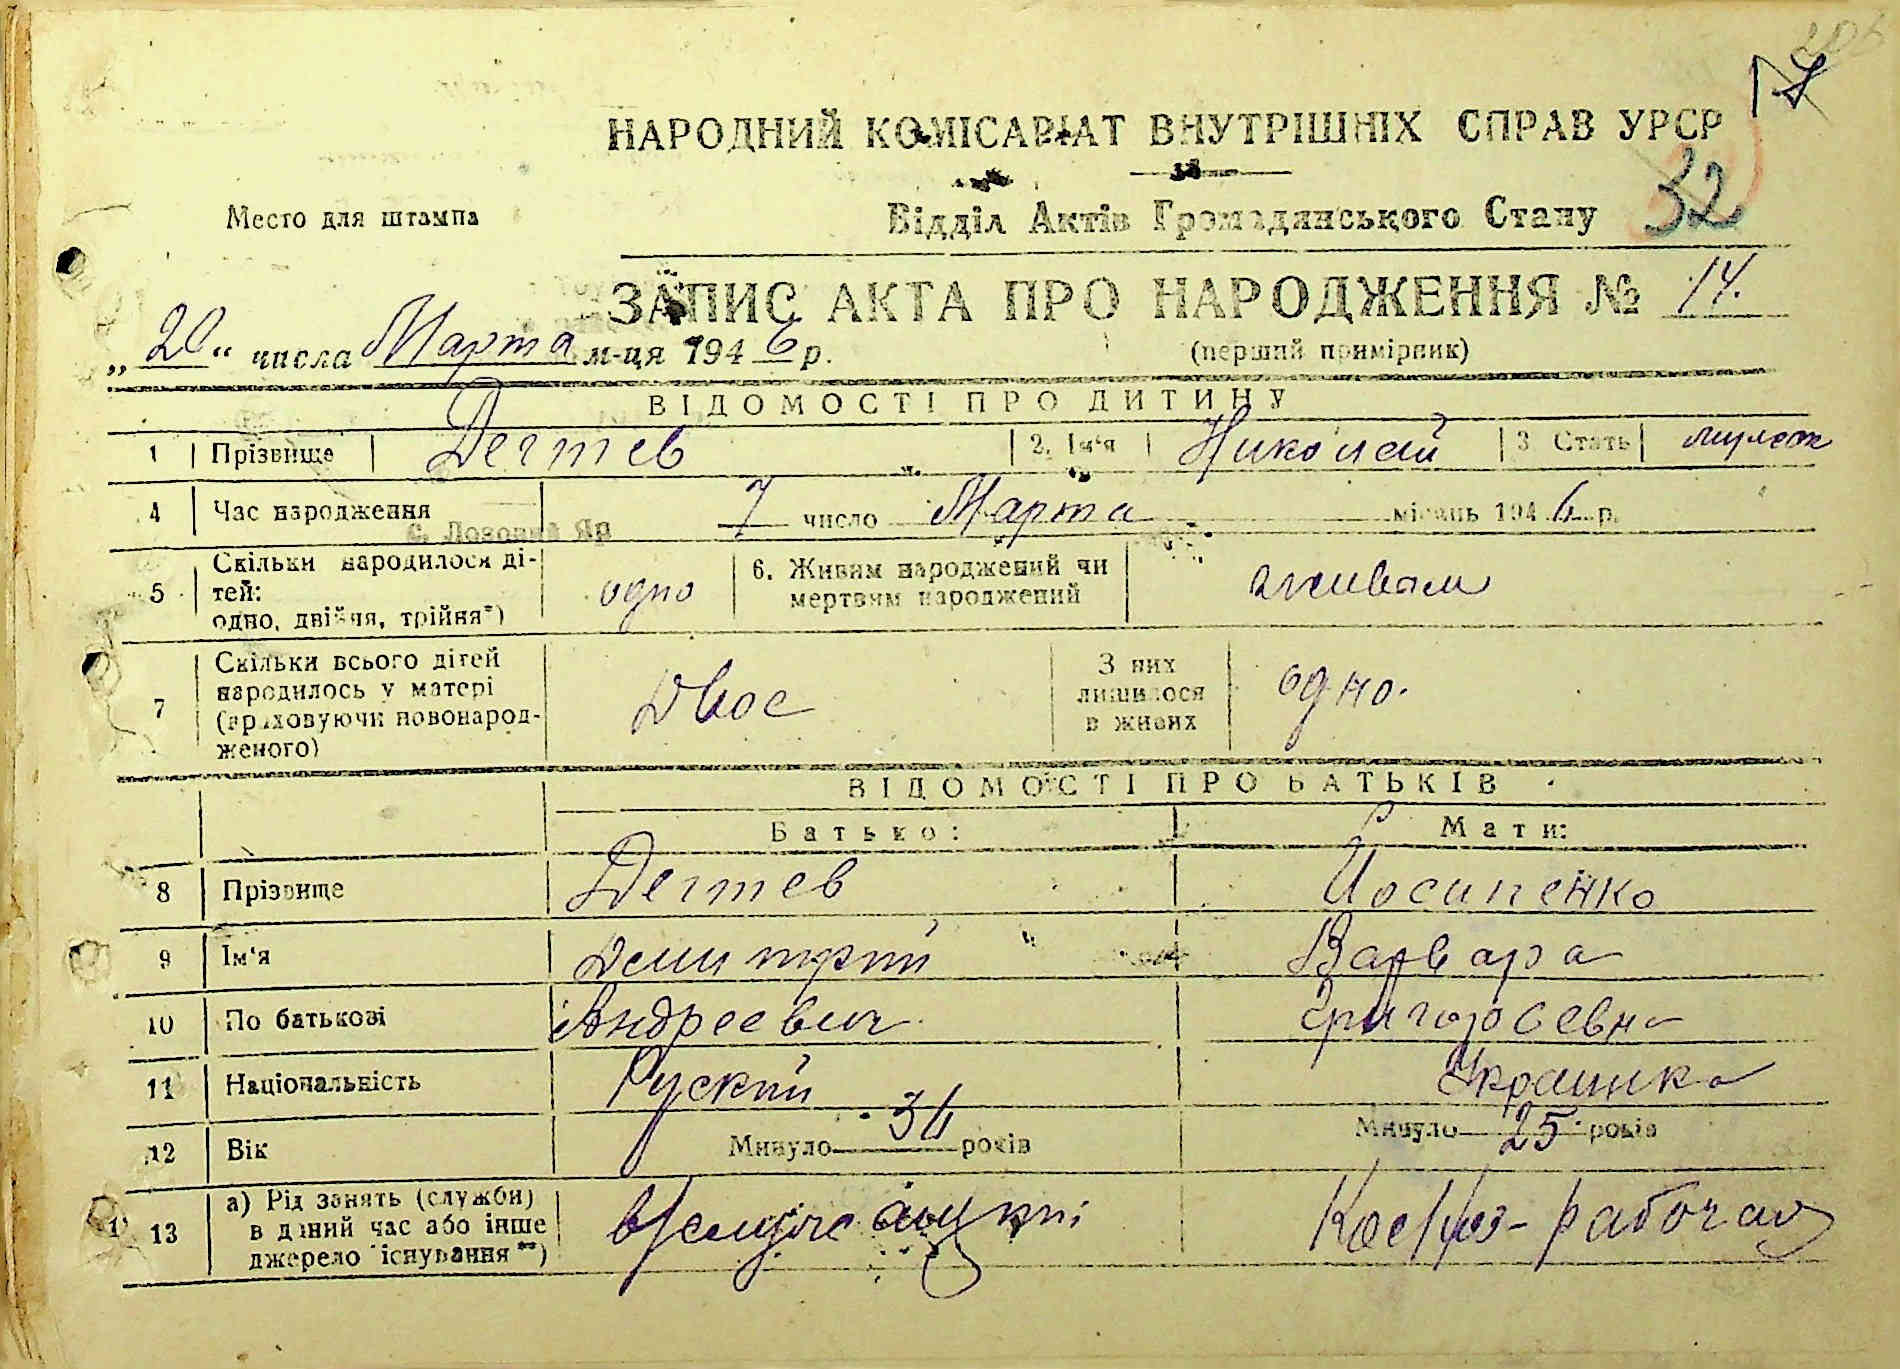 НАРОДНИЙ КОМІСАРІАТ ВНУТРІШНІХ СПРАВ УРСР
32
Место для штампа
Відділ Актів Громадянського Стану
ЗАПИС АКТА ПРО НАРОДЖЕННЯ № 14.
„20“ числа Марта м-ця 1946 р.
(перший примірник)
ВІДОМОСТІ ПРО ДИТИНУ
1 Прізвище Дегтев 2. Ім‘я Николай 3 Стать
4 Час народження 7 число Марта місяць 1946 р.
С. Лозовий Яр
5 Скільки народилося ді-
тей:
одно, двійня, трійня*)
одно
6. Живим народжений чи
мертвим народжений
живым
7 Скільки всього дітей
народилось у матері
(враховуючи новонарод-
женого)
двое
З них
лишилося
в живих
одно.
ВІДОМОСТІ ПРО БАТЬКІВ
Батько: Мати:
8 Прізвище Дегтев Йосипенко
9 Ім‘я Демитрий Варвара
10 По батькові Андреевич Григорьевна
11 Національність Руский Украинка
12 Вік Минуло 34 років Минуло 25 років
13 а) Рід занять (служби)
в даний час або інше
джерело існування **)
рабочая